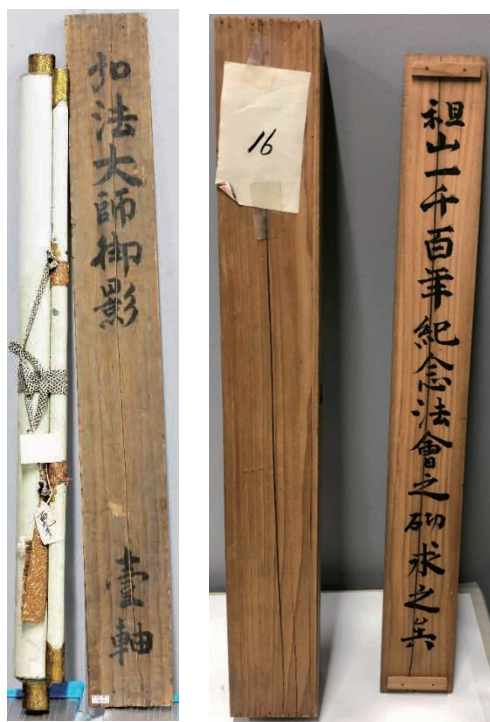 弘法大師御影
壹軸
16
祖山一千百年紀念法會之砌求之矣